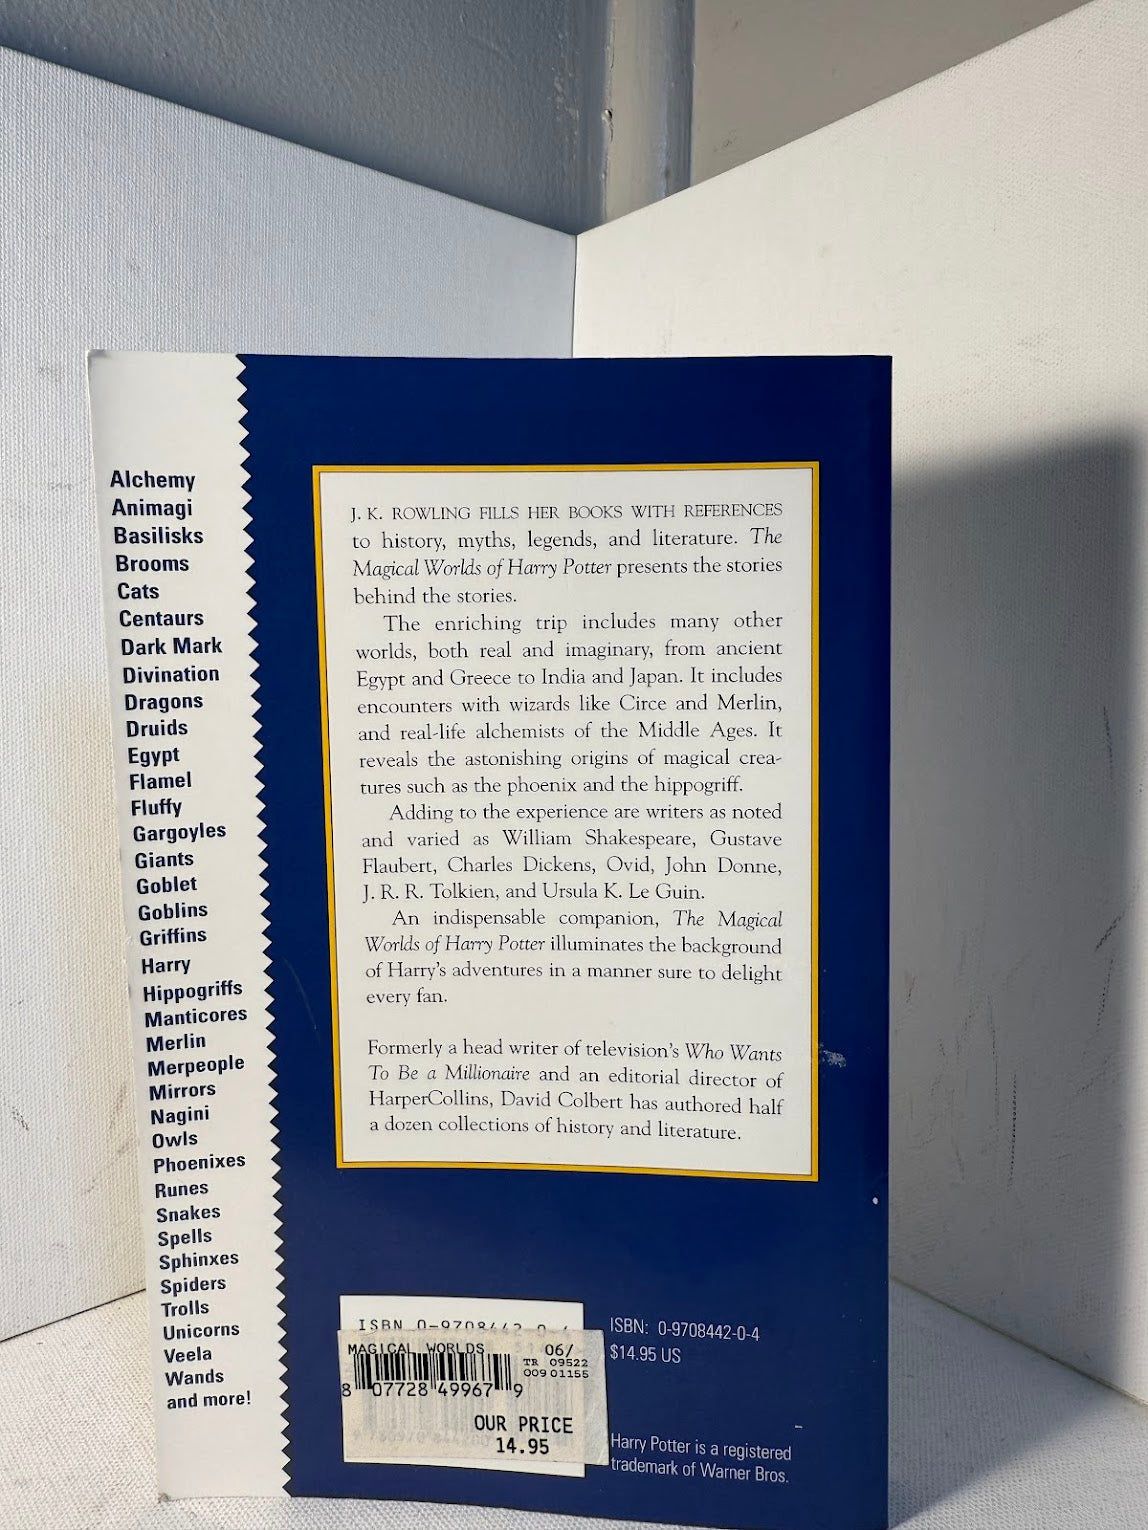 Alchemy
Animagi
Basilisks
Brooms
Cats
Centaurs
Dark Mark
Divination
Dragons
Druids
Egypt
Flamel
Fluffy
Gargoyles
Giants
Goblet
Goblins
Griffins
Harry
Hippogriffs
Manticores
Merlin
Merpeople
Mirrors
Nagini
Owls
Phoenixes
Runes
Snakes
Spells
Sphinxes
Spiders
Trolls
Unicorns
Veela
Wands
and more!
J. K. ROWLING FILLS HER BOOKS WITH REFERENCES
to history, myths, legends, and literature. The
Magical Worlds of Harry Potter presents the stories
behind the stories.
The enriching trip includes many other
worlds, both real and imaginary, from ancient
Egypt and Greece to India and Japan. It includes
encounters with wizards like Circe and Merlin,
and real-life alchemists of the Middle Ages. It
reveals the astonishing origins of magical crea-
tures such as the phoenix and the hippogriff.
Adding to the experience are writers as noted
and varied as William Shakespeare, Gustave
Flaubert, Charles Dickens, Ovid, John Donne,
J. R. R. Tolkien, and Ursula K. Le Guin.
An indispensable companion, The Magical
Worlds of Harry Potter illuminates the background
of Harry's adventures in a manner sure to delight
every fan.
Formerly a head writer of television's Who Wants
To Be a Millionaire and an editorial director of
HarperCollins, David Colbert has authored half
a dozen collections of history and literature.
ISBN 0-9708442-0-4
MAGICAL WORLDS 06/
TR 09522
009 01155
8 07728 49967 9
OUR PRICE
14.95
ISBN: 0-9708442-0-4
$14.95 US
Harry Potter is a registered
trademark of Warner Bros.